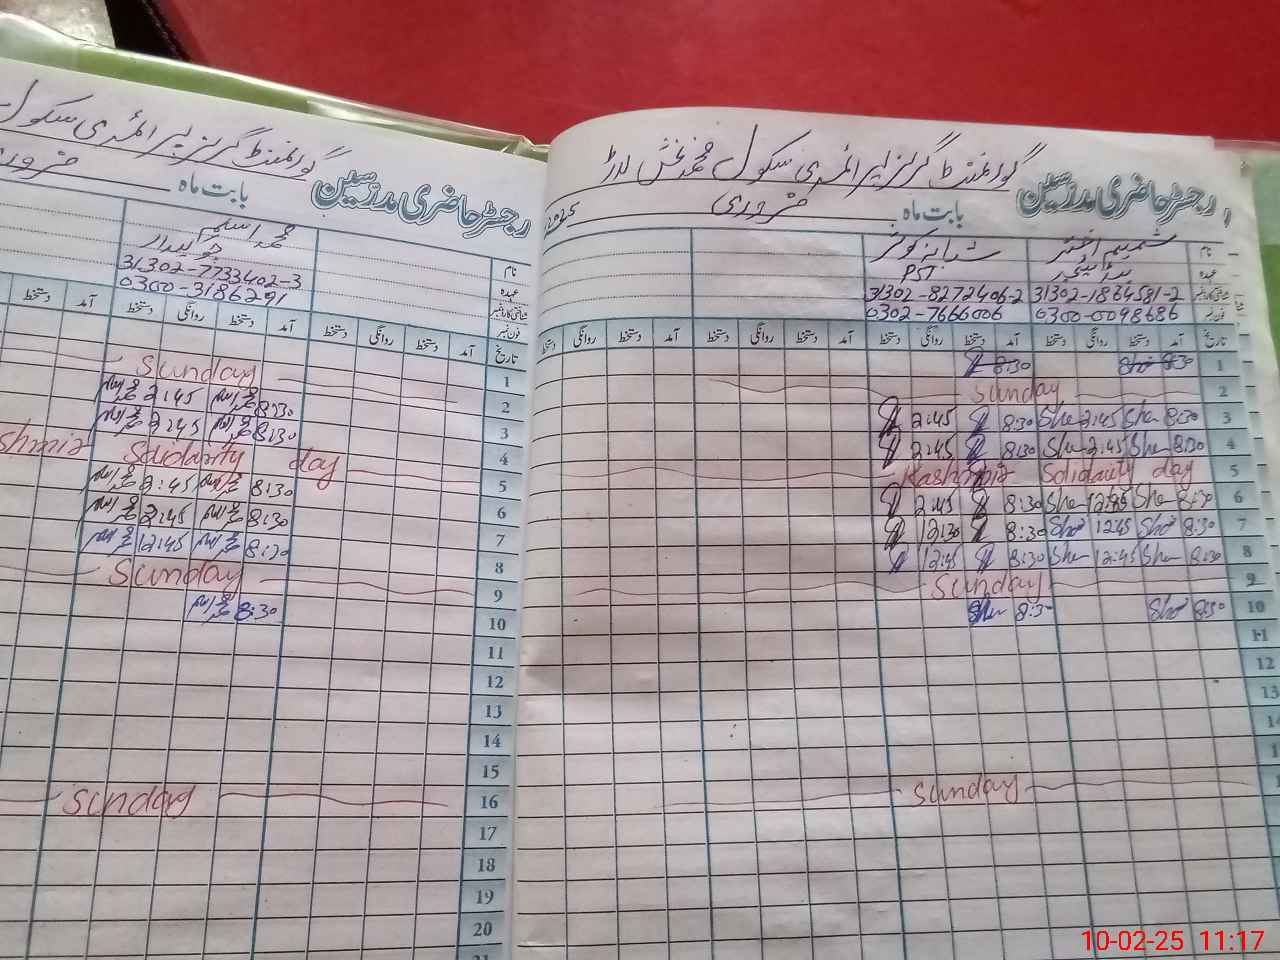 گورنمنٹ گرلز پرائمری سکول
رجسٹر حاضری مدرسین
بابت ماہ
نام
محمد اسلم
عہدہ
چوکیدار
شناختی کارڈ نمبر
31302-7733402-3
فون نمبر
0300-3186291
تاریخ آمد دستخط روانگی دستخط آمد دستخط روانگی دستخط آمد دستخط
1
Sunday
2 8:30 2:45
3 8:30 2:45
4
Solidarity day
5 8:30 2:45
6 8:30 2:45
7 8:30 12:45
8
Sunday
9
10 8:30
11
12
13
14
15
16 Sunday
17
18
19
20
گورنمنٹ گرلز پرائمری سکول محمد بخش لدڑ
رجسٹر حاضری مدرسین
بابت ماہ فروری 2025
نام شمیم اختر شبانہ کوثر
عہدہ ہیڈ ٹیچر PST
شناختی کارڈ نمبر 31302-1864581-2 31302-8272406-2
فون نمبر 0300-0098686 0302-7666006
تاریخ آمد دستخط روانگی دستخط آمد دستخط روانگی دستخط آمد دستخط روانگی دستخط آمد دستخط روانگی دستخط
1 8:30 8:30
2 Sunday
3 8:30 She 2:45 She 8:30 2:45
4 8:30 She 2:45 She 8:30 2:45
5 Kashmir Solidarity day
6 8:30 She 12:45 She 8:30 2:45
7 8:30 Sho 12:45 Sho 8:30 12:30
8 8:30 She 12:45 She 8:30 12:45
9 Sunday
10 8:30 Sho 8:30
11
12
13
14
Sunday
10-02-25 11:17